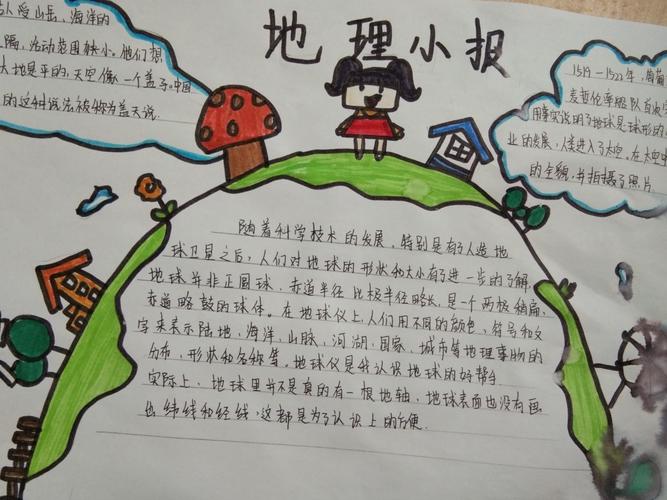 地理小报
人受山岳、海洋的
隔,活动范围狭小。他们想
大地是平的,天空像一个盖子。中国
的这种说法被称为盖天说.
1519-1522年,葡萄
麦哲伦率船队首次
用事实说明了地球是球形的
业的发展,人类进入了太空。在太空
的全貌,并拍摄了照片.
随着科学技术的发展,特别是有了人造地
球卫星之后,人们对地球的形状和大小有了进一步的了解.
地球并非正圆球,赤道半径比极半径略长,是一个两极稍扁、
赤道略鼓的球体。在地球仪上,人们用不同的颜色、符号和文
字来表示陆地、海洋、山脉、河湖、国家、城市等地理事物的
分布、形状和名称等。地球仪是我认识地球的好帮手
实际上,地球里并不是真的有一根地轴,地球表面也没有画
出纬线和经线,这都是为了认识上的方便.